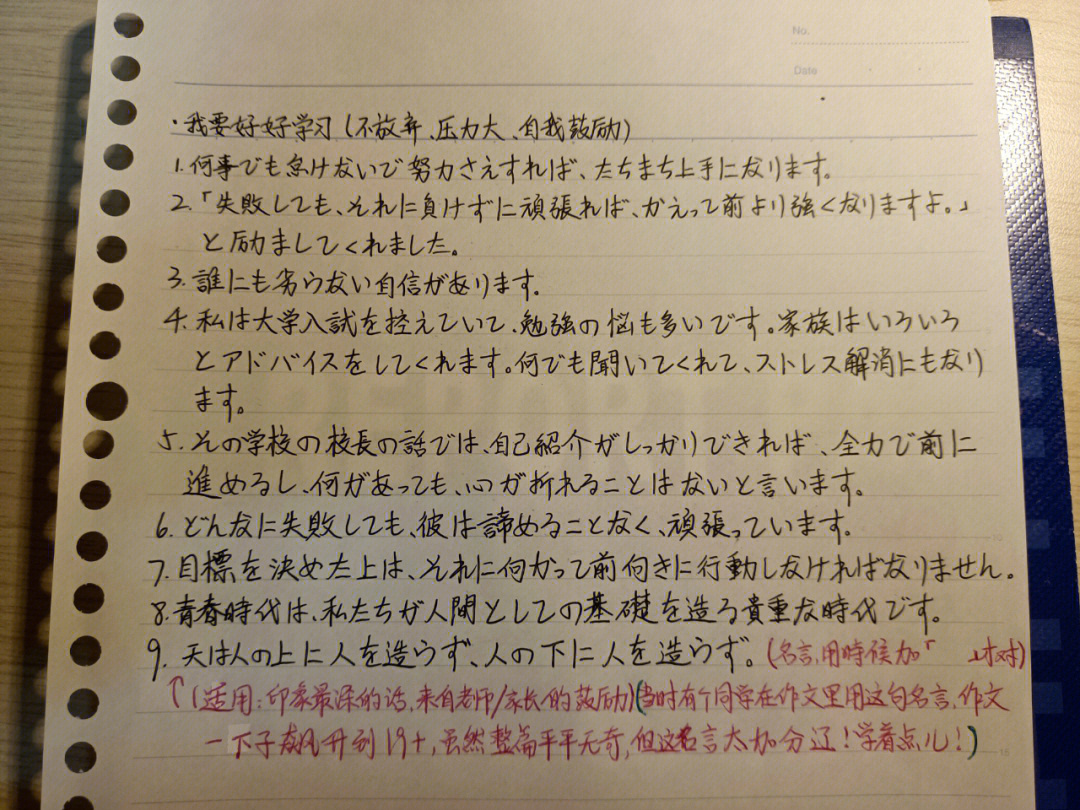 No.
Date
·我要好好学习(不放弃、压力大、自我鼓励)
1.何事でも怠けないで努力さえすれば、たちまち上手になります。
2.「失敗しても、それに負けずに頑張れば、かえって前より強くなりますよ。」
と励ましてくれました。
3.誰にも劣らない自信があります。
4.私は大学入試を控えていて、勉強の悩も多いです。家族はいろいろ
とアドバイスをしてくれます。何でも聞いてくれて、ストレス解消にもなり
ます。
5.その学校の校長の話では、自己紹介がしっかりできれば、全力で前に
進めるし、何があっても、心が折れることはないと言います。
6.どんなに失敗しても、彼は諦めることなく、頑張っています。
7.目標を決めた上は、それに向かって前向きに行動しなければなりません。
8.青春時代は、私たちが人間としての基礎を造る貴重な時代です。
9.天は人の上に人を造らず、人の下に人を造らず。(名言,用時候加「 」才对)
↑(适用:印象最深的话,来自老师/家长的鼓励)(当时有个同学在作文里用这句名言,作文
一下子飙升到19+,虽然整篇平平无奇,但这名言太加分辽!学着点儿!)